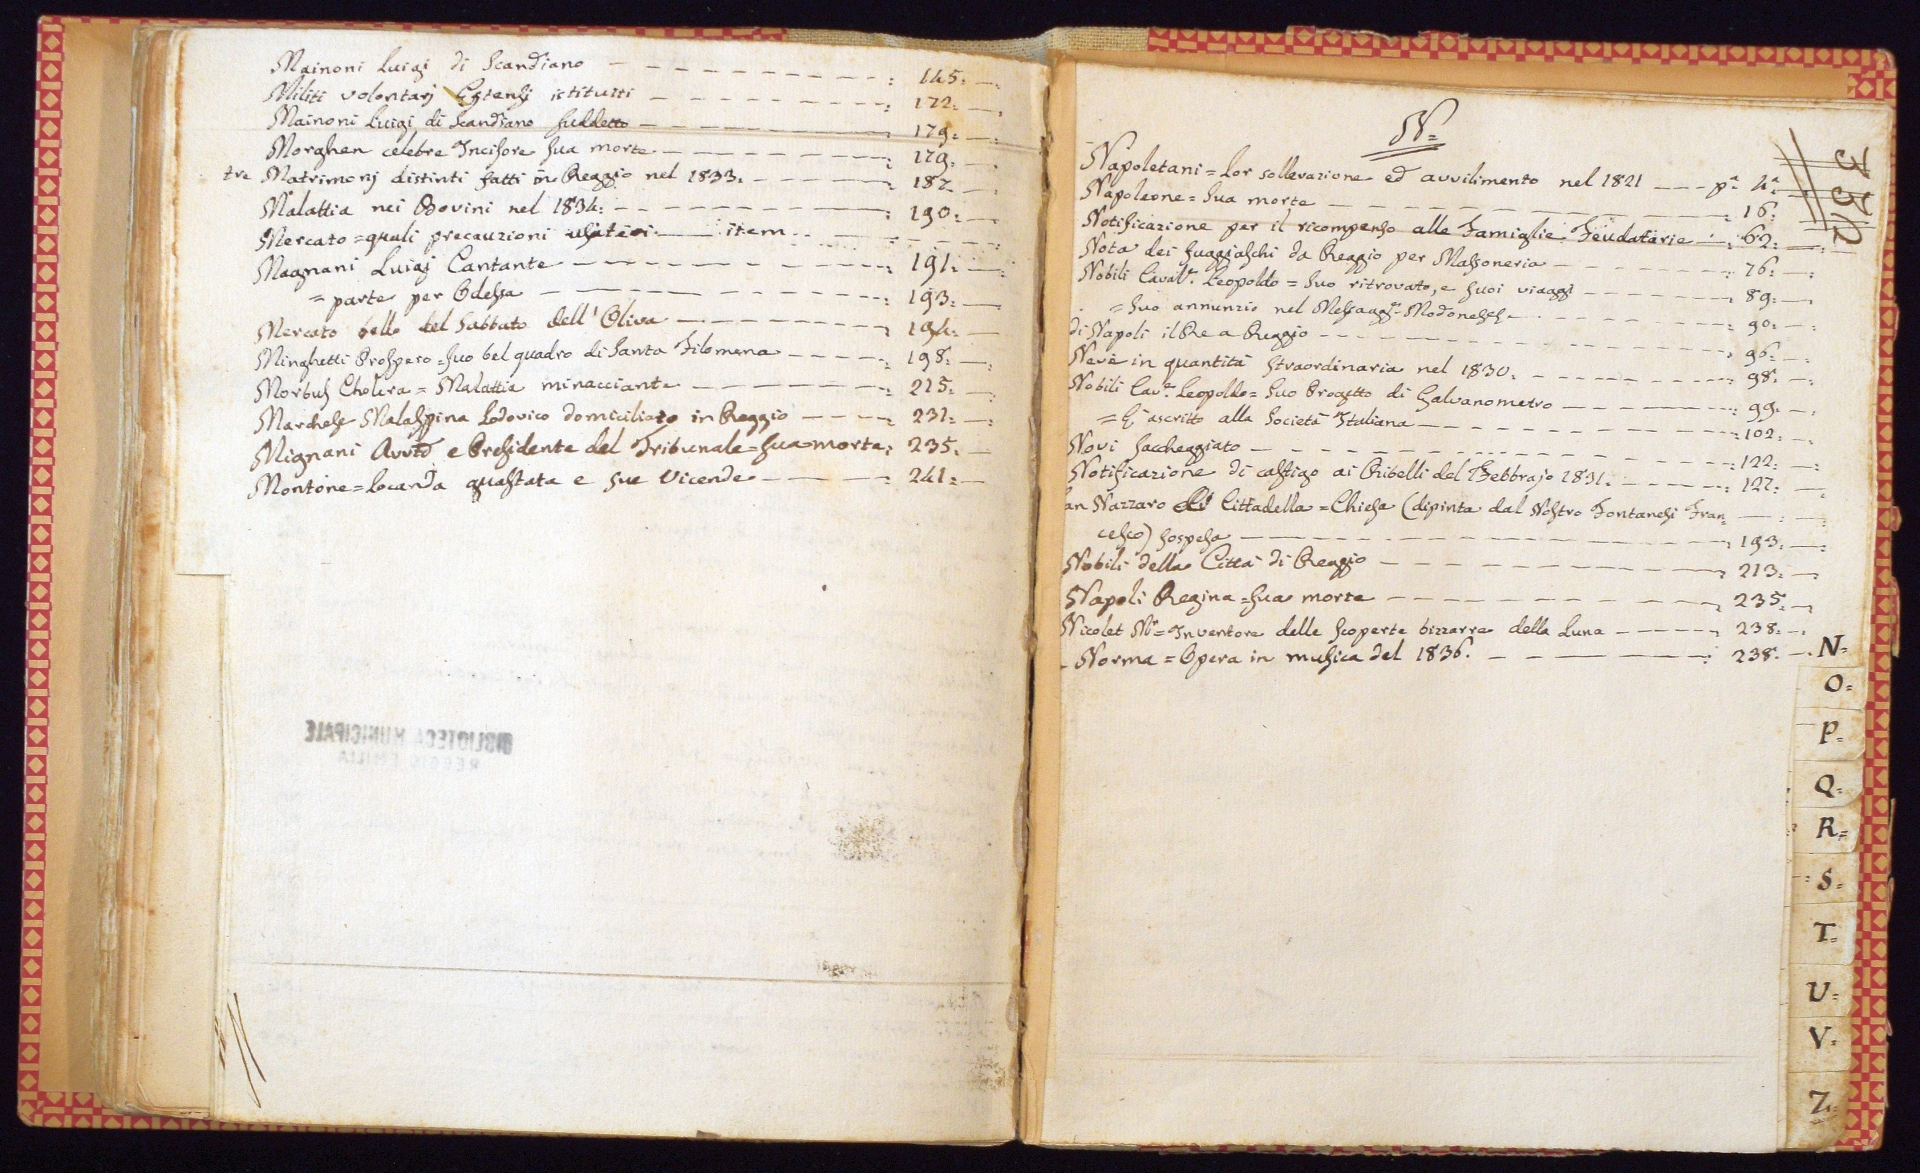 Mainoni Luigi di Scandiano : 145:
Militi volontarj Estensi istituiti : 172:
Mainoni Luigi di Scandiano suddetto : 179:
Morghen celebre Incisore sua morte : 179:
tre Matrimonj distinti fatti in Reggio nel 1833. : 187
Malattia nei Bovini nel 1834: : 190:
Mercato = quali precauzioni item
Magnani Luigi Cantante : 191:
= parte per Odessa : 193:
Mercato bello del Sabbato dell'Oliva : 194:
Minghetti Prospero = suo bel quadro di Santa Filomena : 198:
Morbus Cholera = Malattia minacciante : 215:
Marchese Malaspina Lodovico domiciliato in Reggio : 231:
Mignani Avvto e Presidente del Tribunale = sua morte: 235.
Montone = locanda guastata e sue vicende : 241:
BIBLIOTECA MUNICIPALE
REGGIO EMILIA
N=
Napoletani = Lor sollevazione ed avvilimento nel 1821 pa 4a
Napoleone = sua morte : 16:
Notificazione per il ricompenso alle Famiglie Feudatarie : 62:
Nota dei fuggiaschi da Reggio per Massoneria : 76:
Nobili Cavalr. Leopoldo = suo ritrovato, e suoi viaggi : 89:
= suo annunzio nel Messaggr. Modonese : 90:
di Napoli il Re a Reggio : 96:
Neve in quantità straordinaria nel 1830. : 98:
Nobili Cavr. Leopoldo = suo Progetto di Galvanometro : 99:
= È ascritto alla Società Italiana : 102:
Novi saccheggiato : 122:
Notificazione di castigo ai Ribelli del Febbrajo 1831. : 127:
an Nazzaro Cittadella = Chiesa (dipinta dal Nostro Fontanesi Fran=
cesco) sospesa : 193:
Nobili della Città di Reggio : 213:
Napoli Regina = sua morte : 235:
Nicolet Mr = Inventore delle scoperte bizzarre della Luna : 238:
Norma = Opera in musica del 1836. : 238.
N=
O=
P=
Q=
R=
S=
T=
U=
V=
Z=